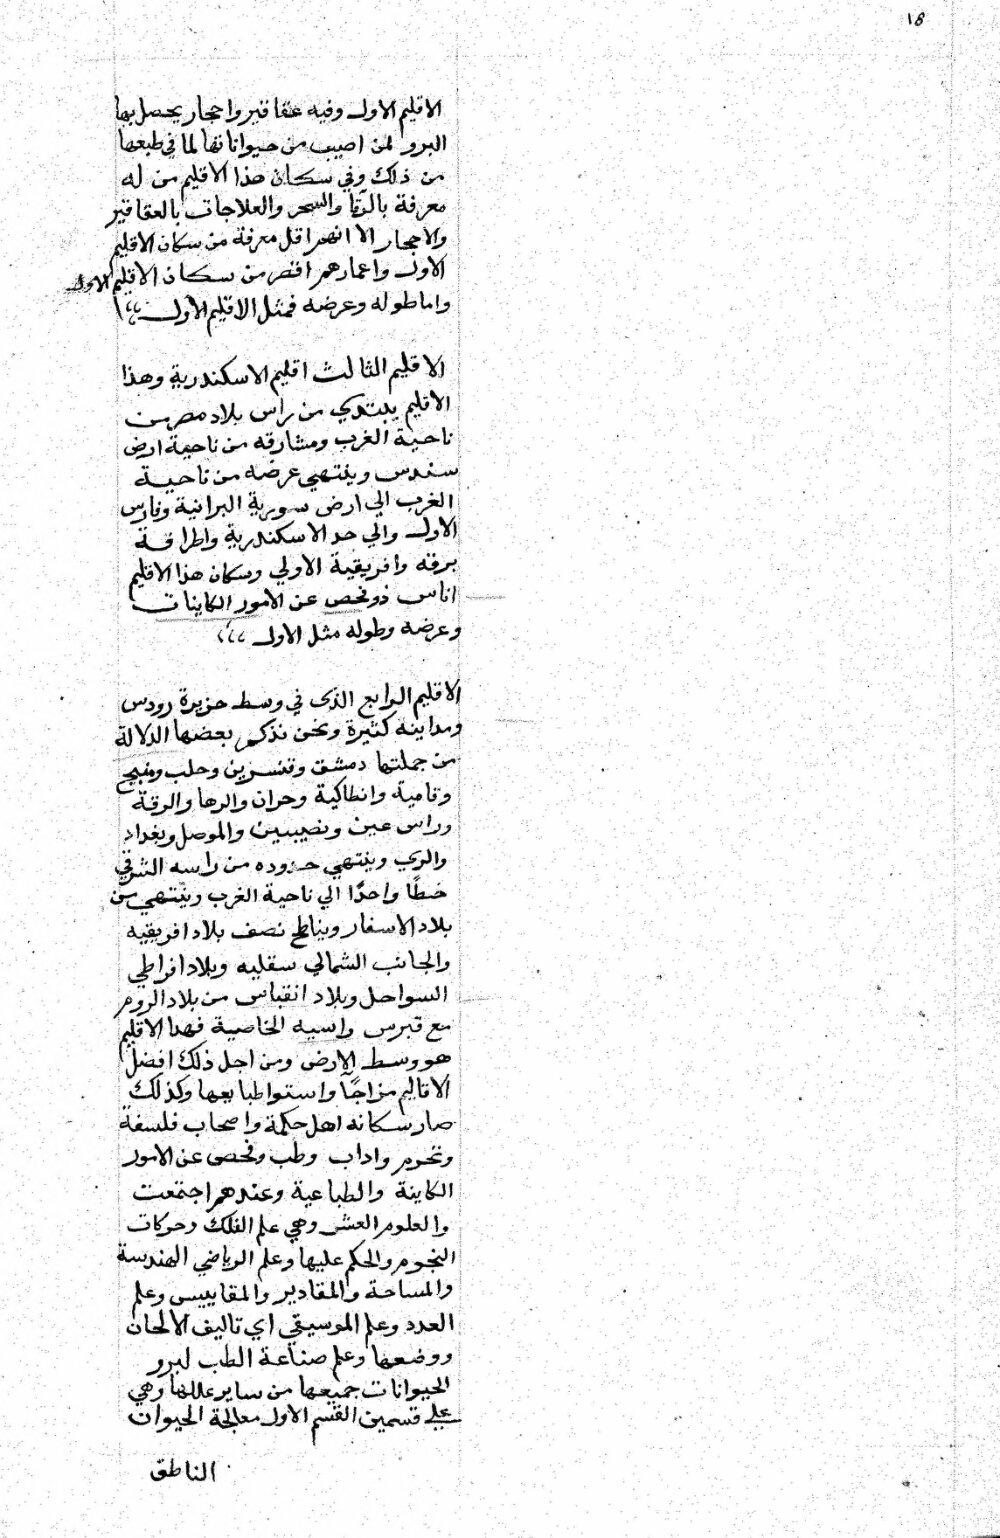 ١٨
الاقليم الاول وفيه عقاقير واحجار يحصل بها
البرو لمن اصيب من حيواناتها لما في طبعها
من ذلك وفي سكان هذا الاقليم من له
معرفة بالرقا والسحر والعلاجات بالعقاقير
والاحجار الا انهم اقل معرفة من سكان الاقليم
الاول واعمارهم اقصر من سكان الاقليم الاول
واما طوله وعرضه فمثل الاقليم الاول
الاقليم الثالث اقليم الاسكندرية وهذا
الاقليم يبتدي من راس بلاد مصر من
ناحية الغرب ومشارقه من ناحية ارض
سندس وينتهي عرضه من ناحية
الغرب الي ارض سورية البرانية وفارس
الاول والي حد الاسكندرية واطرافة
برقه وافريقية الاولي وسكان هذا الاقليم
اناس ذو فحص عن الامور الكاينات
وعرضه وطوله مثل الاول
الاقليم الرابع الذى في وسط جزيرة رودس
ومداينه كثيرة ونحن نذكر بعضها الدلالة
من جملتها دمشق وقنسرين وحلب ومنبج
وفامية وانطاكية وحران والرها والرقة
وراس عين ونصيبين والموصل وبغداد
والري وينتهي حدوده من راسه الشرقي
خطًا واحدًا الي ناحية الغرب وينتهي من
بلاد الاسفار ويناطح نصف بلاد افريقيه
والجانب الشمالي سقليه وبلاد افراطي
السواحل وبلاد انقباس من بلاد الروم
مع قبرس واسيه الخاصية فهذا الاقليم
هو وسط الارض ومن اجل ذلك افضل
الاقاليم مزاجًا واستوا طبايعها وكذلك
صار سكانه اهل حكمة واصحاب فلسفة
ونجوم واداب وطب وفحص عن الامور
الكاينة والطباعية وعندهم اجتمعت
والعلوم العشر وهي علم الفلك وحركات
النجوم والحكم عليها وعلم الرياضي الهندسة
والمساحة والمقادير والمقاييس وعلم
العدد وعلم الموسيقي اي تاليف الالحان
ووضعها وعلم صناعة الطب لبرو
الحيوانات جميعها من ساير عللها وهي
علي قسمين القسم الاول معالجة الحيوان
الناطق